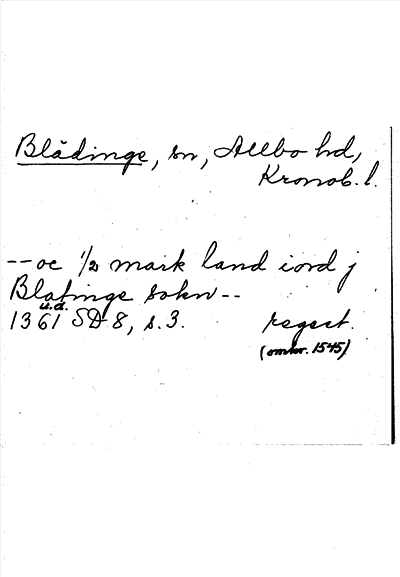 Blädinge, sn, Allbo hd,
Kronob. l.
-- oc ½ mark land iord j
Blatinge sokn --
u.d.
1361 SD 8, s. 3. regest.
(omkr. 1545)